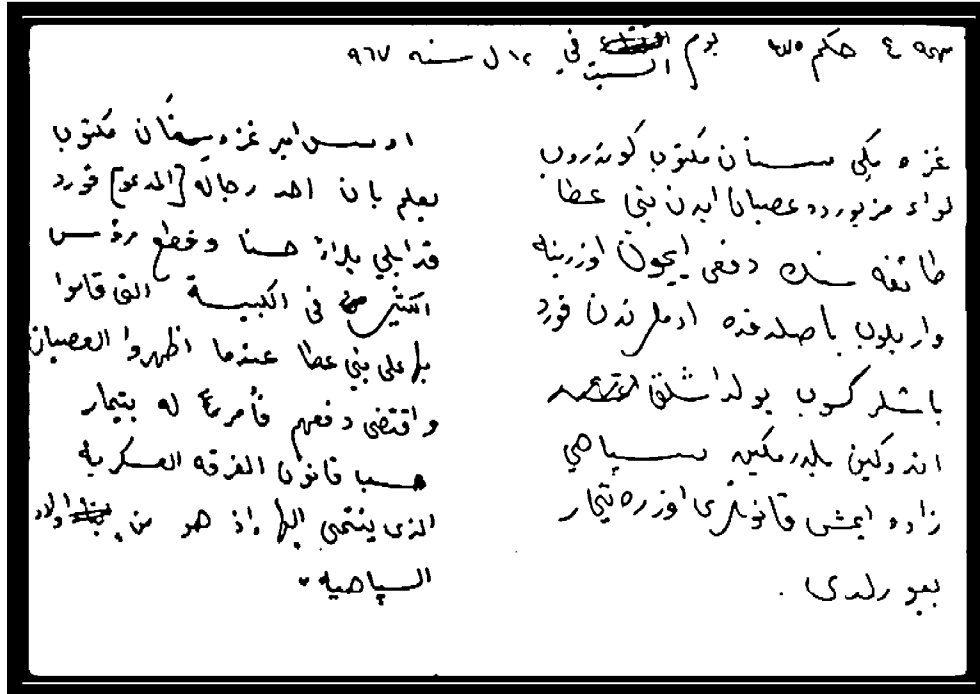 ٤ حكم ٤٧٥ يوم السبت في ١٢ ل سنه ٩٦٧
غزه بكي سنان مكتوب كوندروب
لواء مزبورده عصيان ايدن بني عطا
طائفه سنك دفعى ايچون اوزرينه
واريلوب باصلدقده ادملرندن فورد
باشلر كسوب يولداشلق
اندوكين بلدرمكين سپاهي
زاده ايمش قانونلرى اوزره تيمار
بيورلدى .
ارسل امير غزه سنان مكتوب
يعلم بان احد رجاله [المدعو] فورد
قد ابلي بلاءً حسنا وقطع رؤس
الكثير في الكبسة التي قاموا
بها على بني عطا عندما اظهروا العصيان
واقتضى دفعهم فأمر له بتيمار
حسب قانون الفرقه العسكريه
الذى ينتمي إليها إذ هو من اولاد
السپاهيه .